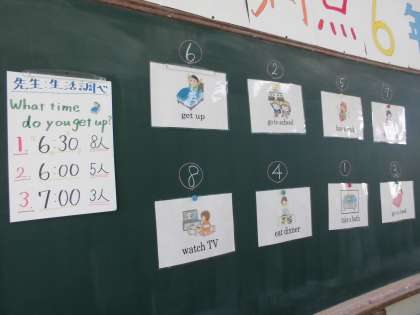 点 6年
先生生活調べ
What time
do you get up?
1. 6:30 8人
2. 6:00 5人
3. 7:00 3人
6
2
5
7
get up
go to school
8
4
1
3
watch TV
eat dinner
take a bath
go to bed